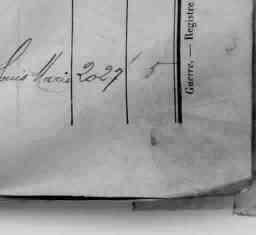 Louis Marie 2027 5
Guerre. — Registre